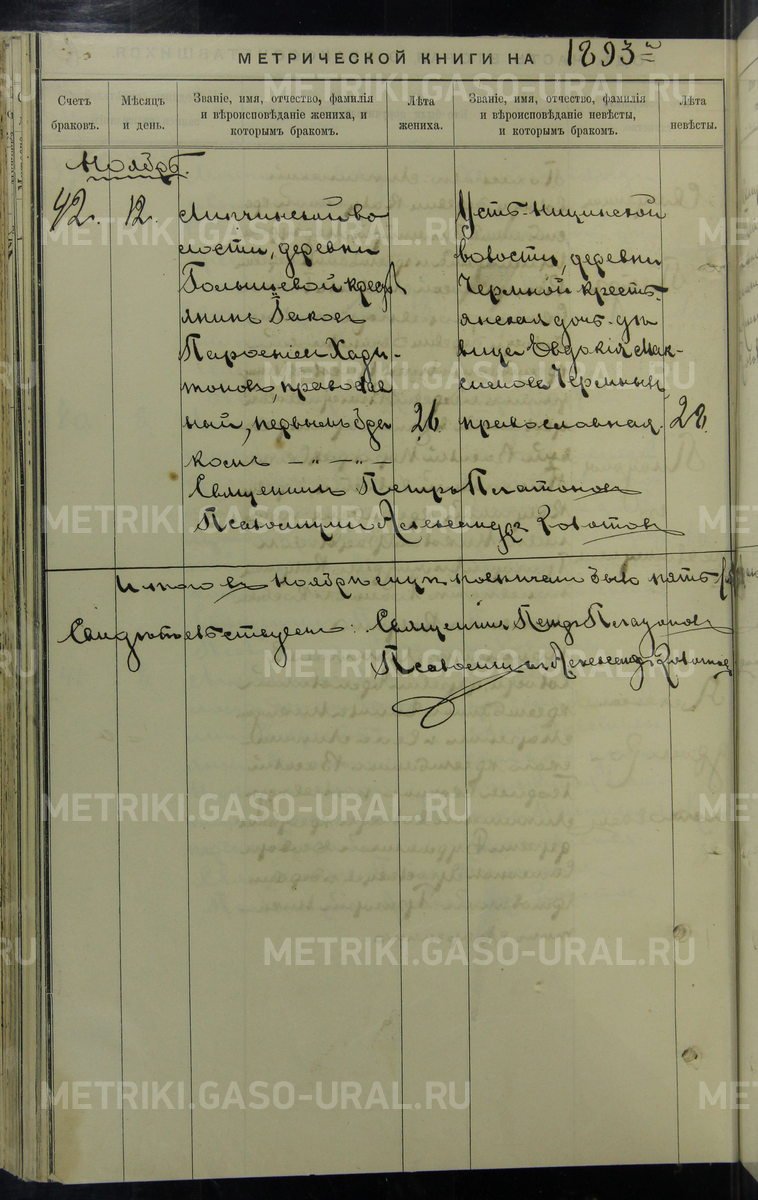 МЕТРИЧЕСКОЙ КНИГИ НА 1893 г
Счетъ браковъ.
Мѣсяцъ и день.
Званіе, имя, отчество, фамилія и вѣроисповѣданіе жениха, и которымъ бракомъ.
Лѣта жениха.
Званіе, имя, отчество, фамилія и вѣроисповѣданіе невѣсты, и которымъ бракомъ.
Лѣта невѣсты.
Нояб.
42.
12.
Липчинской во
лости, деревни
кресть
янинъ Іаковъ
Хари-
тоновъ, правосла
ный, первымъ бра
комъ — " — " —
26
Усть-Ницинской
волости, деревни
Чермной кресть-
янская дочь дѣ
вица Евдокія Мак-
симова Чермныхъ
православная.
Священникъ Петръ Платоновъ
Псаломщикъ Александръ
Итого въ Ноябрѣ было пять
Священникъ Петръ Платоновъ
Псаломщикъ Александръ
METRIKI.GASO-URAL.RU